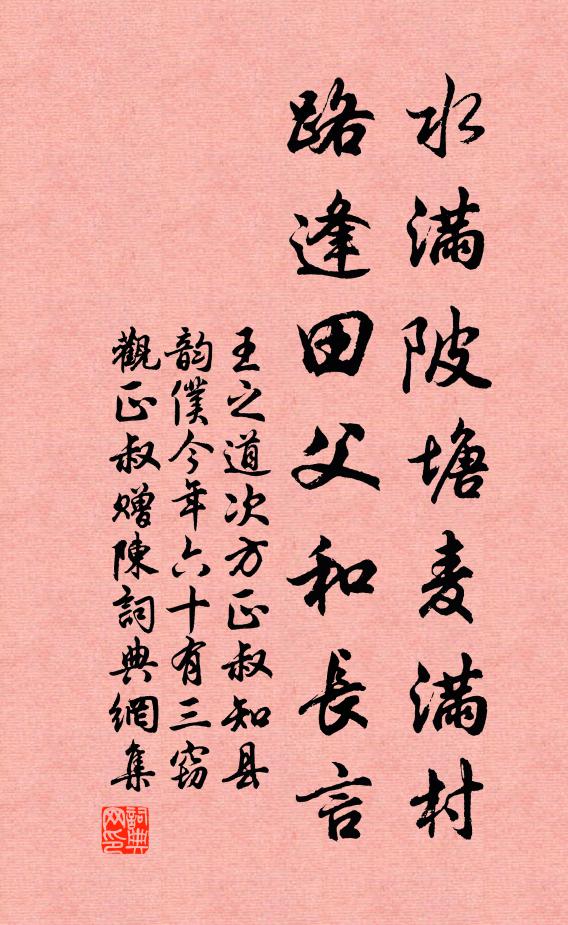 水满陂塘麦满村
路逢田父和長言
王之道次方正叔知县
韵僕今年六十有三窃
觀正叔赠陳詞典網集
詞典网印